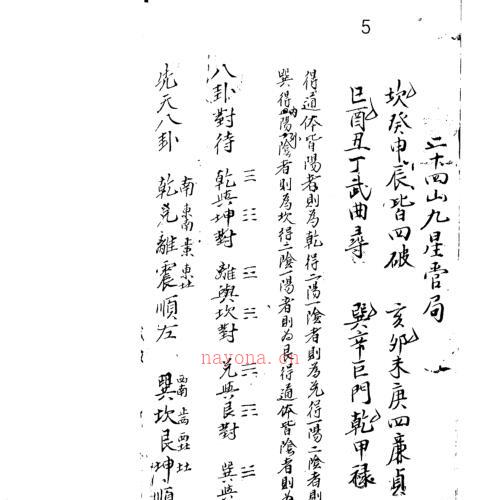 5
二十四山九星管局
坎癸申辰皆四破 亥卯未庚四廉貞
巳酉丑丁武曲尋 巽辛巨門乾甲祿
得道体皆陽者則為乾得二陽一陰者則為兑得一陽二陰者則
巽得陽陰者則為坎得二陰一陽者則为艮得道体皆陰者則為
八卦對待 乾與坤對 離與坎對 兑與艮對 巽與
先天八卦 乾兑離震順左 巽坎艮坤順
南 東南 東 東北 西南 西 西北
nayona.cn